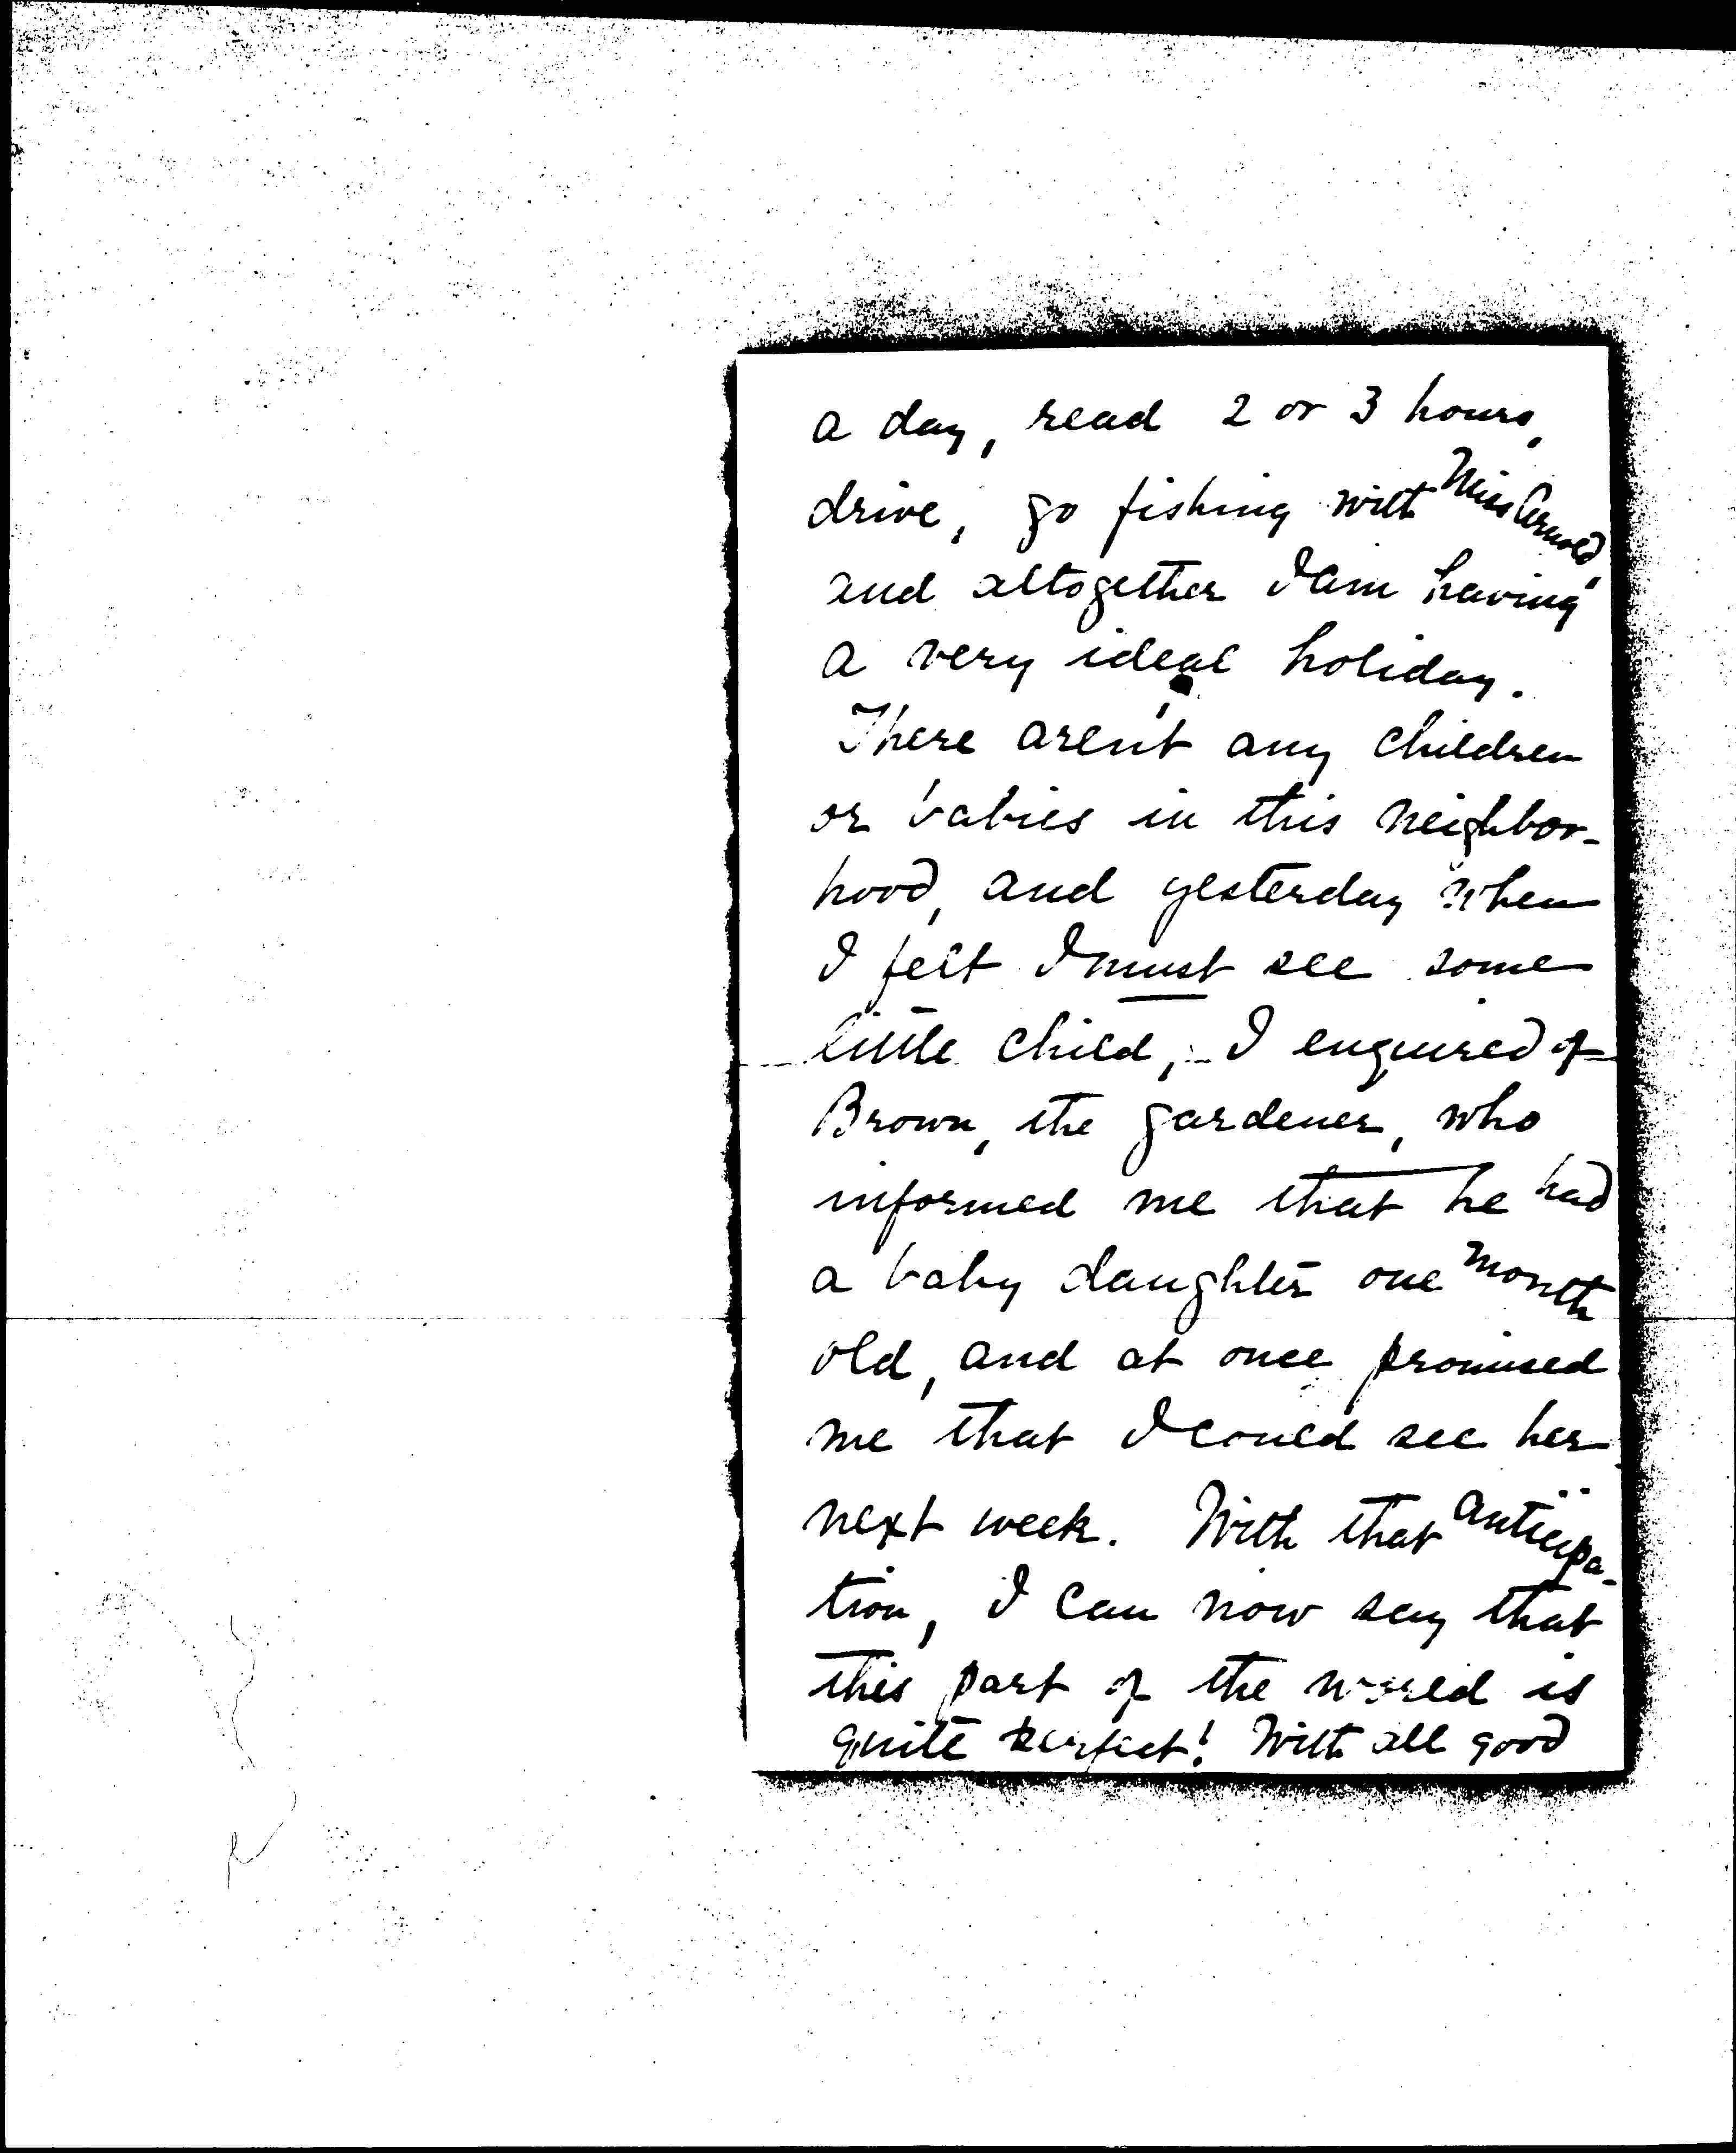 a day, read 2 or 3 hours,
drive, go fishing with Miss Arnold,
and altogether I am having
a very ideal holiday.
There aren't any children
or babies in this neighbor-
hood, and yesterday when
I felt I must see some
little child, - I enquired of
Brown, the gardener, who
informed me that he had
a baby daughter one month
old, and at once promised
me that I could see her
next week. With that anticipa-
tion, I can now say that
this part of the world is
quite perfect! With all good